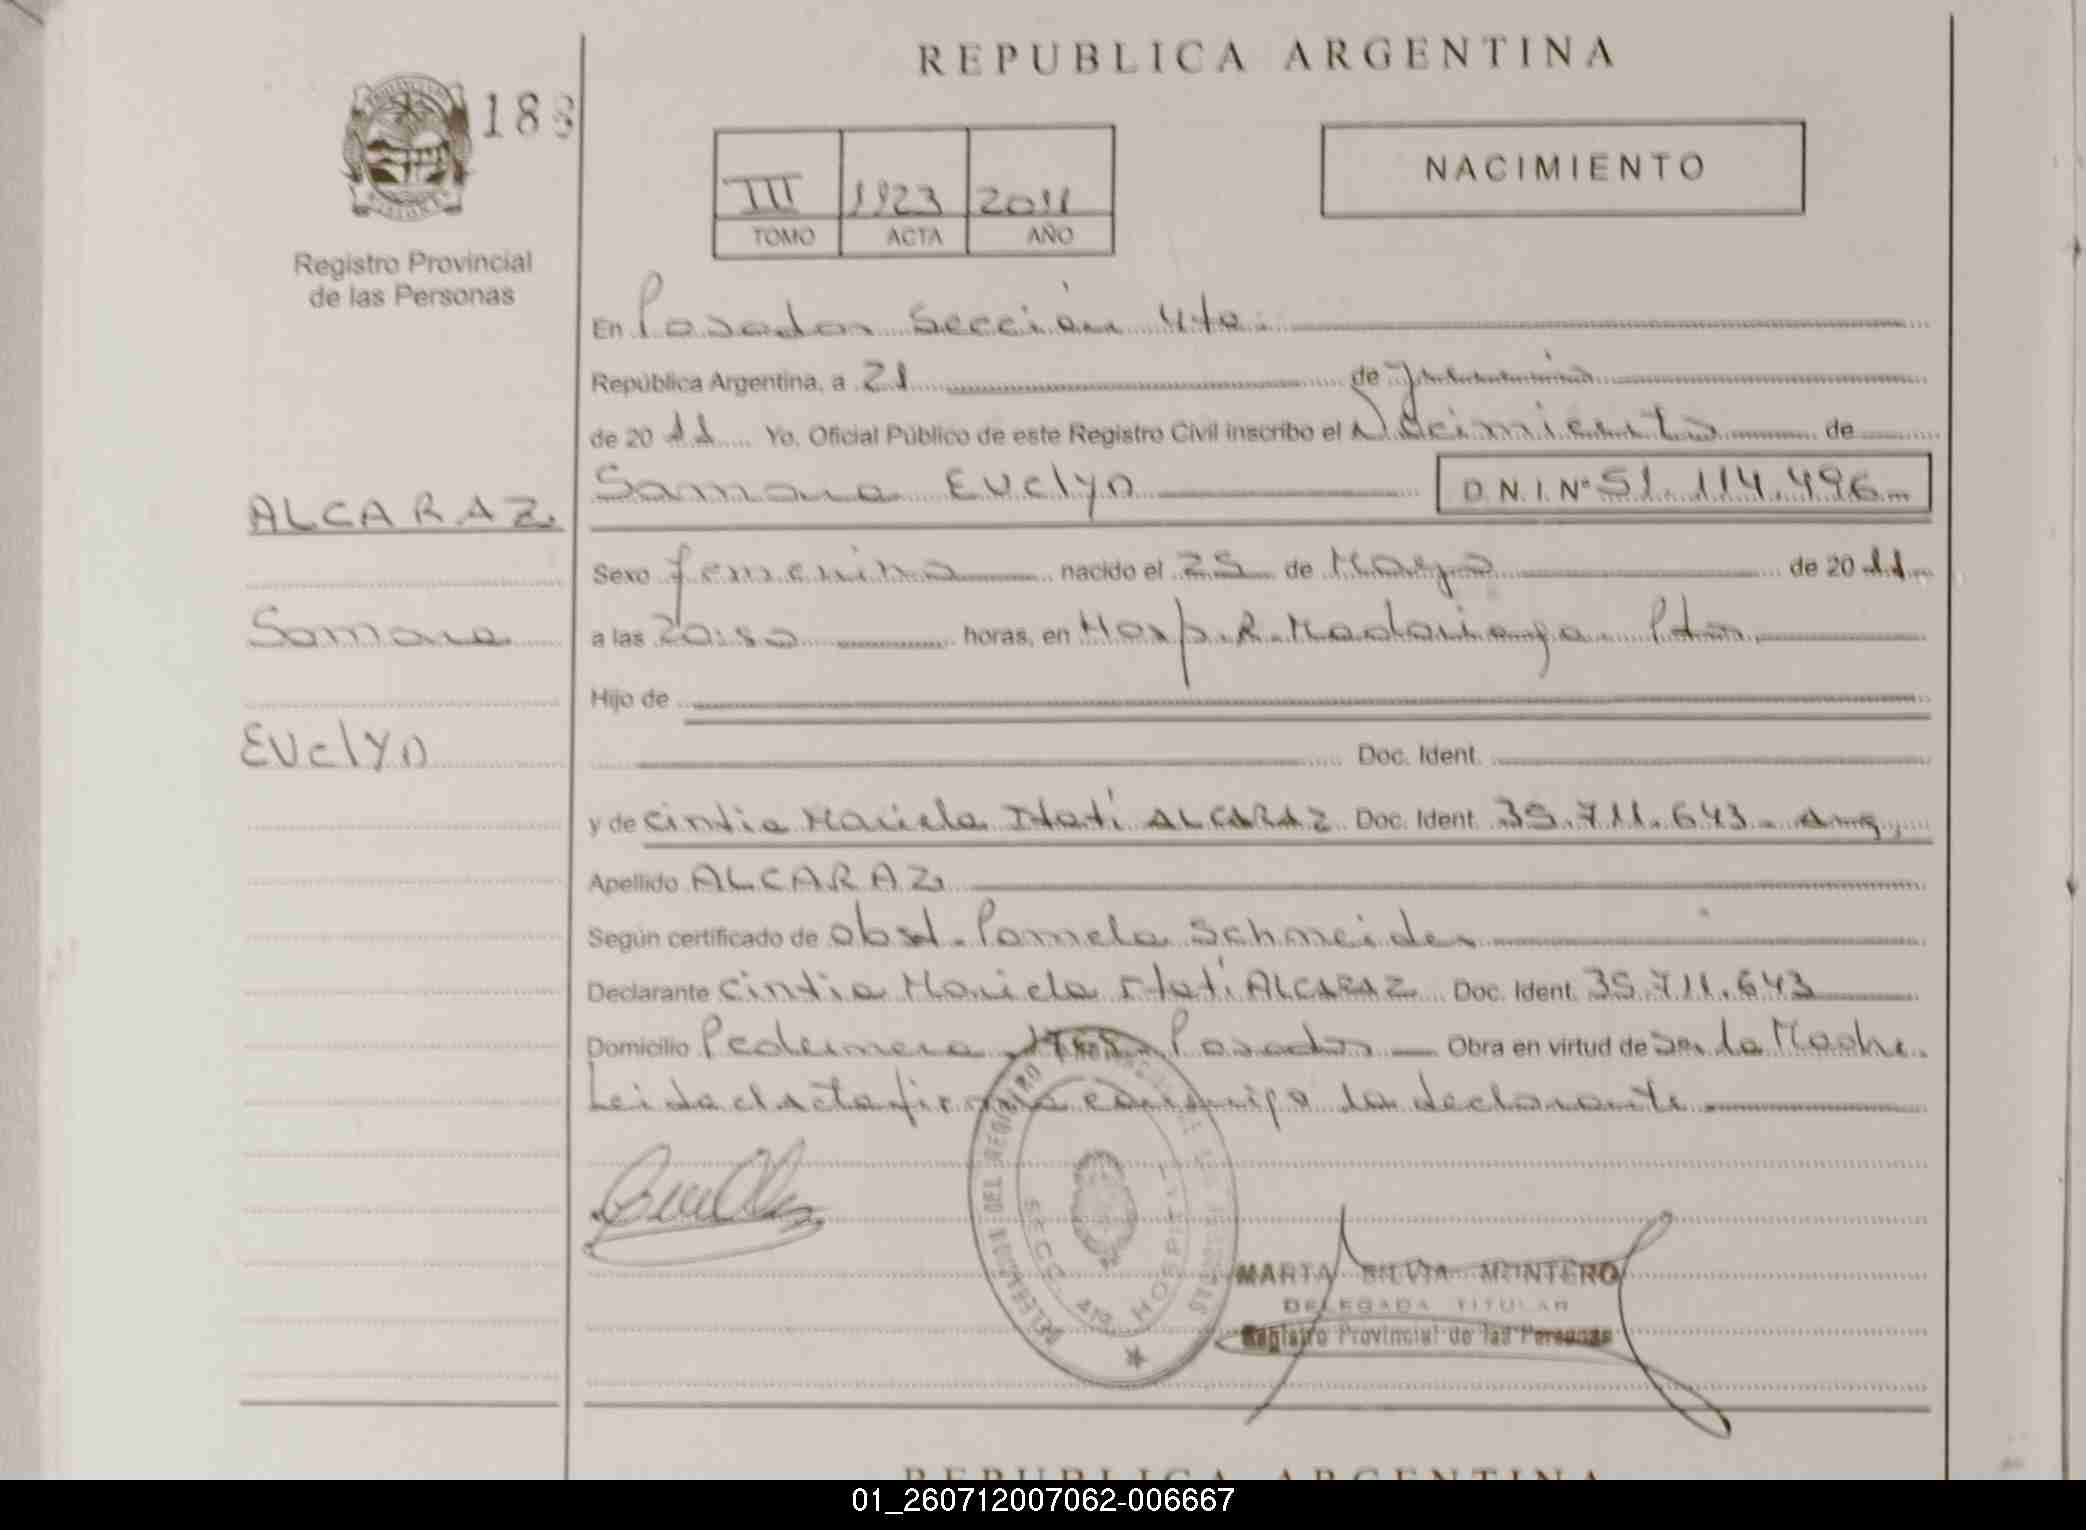 REPUBLICA ARGENTINA
188
NACIMIENTO
III 1923 2011
TOMO ACTA AÑO
Registro Provincial
de las Personas
En Posadas Sección 4ta.
República Argentina, a 21 de Junio
de 20 11 Yo, Oficial Público de este Registro Civil inscribo el Nacimiento de
Samara Evelyn D.N.I.Nº 51.114.496
ALCARAZ
Sexo femenino nacido el 25 de Mayo de 20 11
Samara
a las 20:50 horas, en Hosp. R. Madariaga. Pdas.
Hijo de
Evelyn
Doc. Ident.
y de Cintia Mariela Itatí ALCARAZ Doc. Ident. 35.711.643. Arg.
Apellido ALCARAZ
Según certificado de Obst. Pamela Schneider
Declarante Cintia Mariela Itatí ALCARAZ Doc. Ident. 35.711.643
Domicilio Pedernera Posadas Obra en virtud de Ser la Madre.
Leida el acta firma conmigo la declarante
DELEGACION DEL REGISTRO PROVINCIAL DE LAS PERSONAS
SECC. 4ta HOSPITAL
MARTA SILVIA MONTERO
DELEGADA TITULAR
Registro Provincial de las Personas
REPUBLICA ARGENTINA
01_260712007062-006667